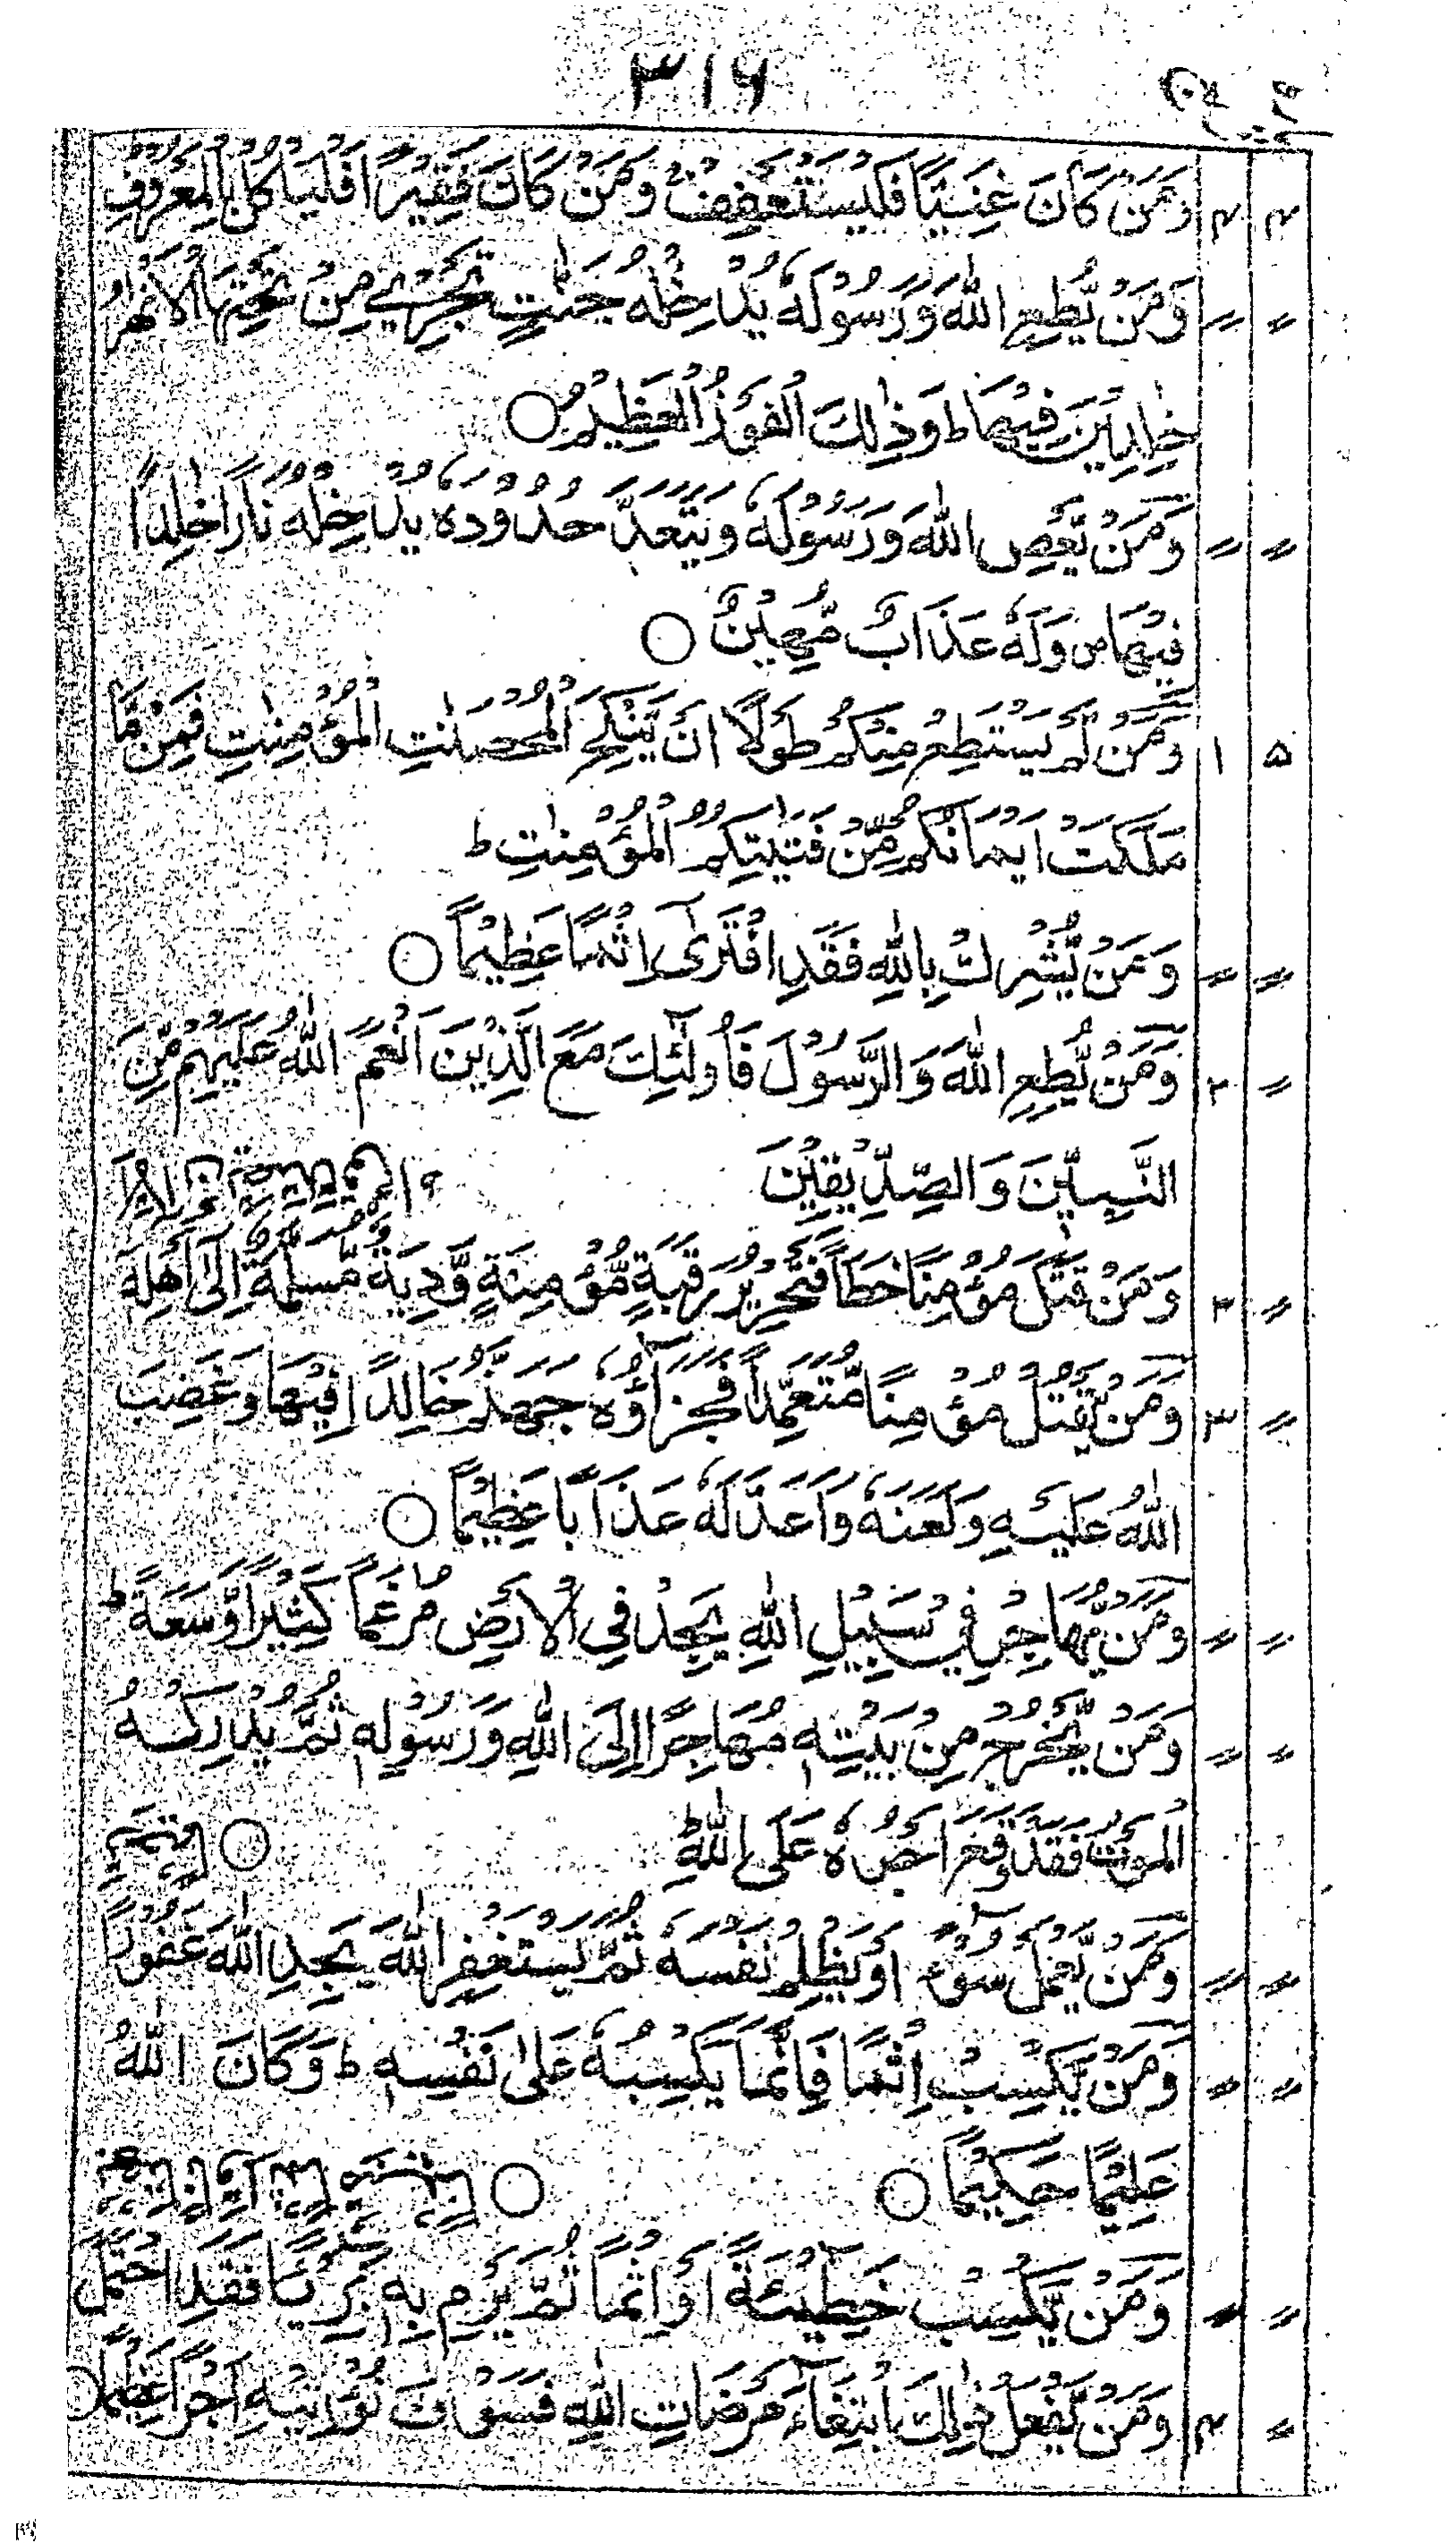 ٣١٦
٤ ٤ وَمَنْ كَانَ غَنِيًّا فَلْيَسْتَعْفِفْ وَمَنْ كَانَ فَقِيْرًا فَلْيَأْكُلْ بِالْمَعْرُوفِ
〃 〃 وَمَنْ يُّطِعِ اللّٰهَ وَرَسُوْلَهٗ يُدْخِلْهُ جَنّٰتٍ تَجْرِيْ مِنْ تَحْتِهَا الْاَنْهٰرُ
خٰلِدِيْنَ فِيْهَا ط وَذٰلِكَ الْفَوْزُ الْعَظِيْمُ ○
〃 〃 وَمَنْ يَّعْصِ اللّٰهَ وَرَسُوْلَهٗ وَيَتَعَدَّ حُدُوْدَهٗ يُدْخِلْهُ نَارًا خٰلِدًا
فِيْهَا ص وَلَهٗ عَذَابٌ مُّهِيْنٌ ○
٥ ١ وَمَنْ لَّمْ يَسْتَطِعْ مِنْكُمْ طَوْلًا اَنْ يَّنْكِحَ الْمُحْصَنٰتِ الْمُؤْمِنٰتِ فَمِنْ مَّا
مَلَكَتْ اَيْمَانُكُمْ مِّنْ فَتَيٰتِكُمُ الْمُؤْمِنٰتِ ط
〃 〃 وَمَنْ يُّشْرِكْ بِاللّٰهِ فَقَدِ افْتَرٰٓى اِثْمًا عَظِيْمًا ○
〃 ٢ وَمَنْ يُّطِعِ اللّٰهَ وَالرَّسُوْلَ فَاُولٰٓئِكَ مَعَ الَّذِيْنَ اَنْعَمَ اللّٰهُ عَلَيْهِمْ مِّنَ
النَّبِيّٖنَ وَالصِّدِّيْقِيْنَ
〃 ٣ وَمَنْ قَتَلَ مُؤْمِنًا خَطَـًٔا فَتَحْرِيْرُ رَقَبَةٍ مُّؤْمِنَةٍ وَّدِيَةٌ مُّسَلَّمَةٌ اِلٰٓى اَهْلِهٖ
〃 ٣ وَمَنْ يَّقْتُلْ مُؤْمِنًا مُّتَعَمِّدًا فَجَزَآؤُهٗ جَهَنَّمُ خَالِدًا فِيْهَا وَغَضِبَ
اللّٰهُ عَلَيْهِ وَلَعَنَهٗ وَاَعَدَّ لَهٗ عَذَابًا عَظِيْمًا ○
〃 〃 وَمَنْ يُّهَاجِرْ فِيْ سَبِيْلِ اللّٰهِ يَجِدْ فِي الْاَرْضِ مُرٰغَمًا كَثِيْرًا وَّسَعَةً ط
〃 〃 وَمَنْ يَّخْرُجْ مِنْ بَيْتِهٖ مُهَاجِرًا اِلَى اللّٰهِ وَرَسُوْلِهٖ ثُمَّ يُدْرِكْهُ
الْمَوْتُ فَقَدْ وَقَعَ اَجْرُهٗ عَلَى اللّٰهِ ط ○
〃 〃 وَمَنْ يَّعْمَلْ سُوْٓءًا اَوْ يَظْلِمْ نَفْسَهٗ ثُمَّ يَسْتَغْفِرِ اللّٰهَ يَجِدِ اللّٰهَ غَفُوْرًا
〃 〃 وَمَنْ يَّكْسِبْ اِثْمًا فَاِنَّمَا يَكْسِبُهٗ عَلٰى نَفْسِهٖ ط وَكَانَ اللّٰهُ
عَلِيْمًا حَكِيْمًا ○ ○
〃 〃 وَمَنْ يَّكْسِبْ خَطِيْٓئَةً اَوْ اِثْمًا ثُمَّ يَرْمِ بِهٖ بَرِيْٓئًا فَقَدِ احْتَمَلَ
〃 ٤ وَمَنْ يَّفْعَلْ ذٰلِكَ ابْتِغَآءَ مَرْضَاتِ اللّٰهِ فَسَوْفَ نُؤْتِيْهِ اَجْرًا عَظِيْمًا ○